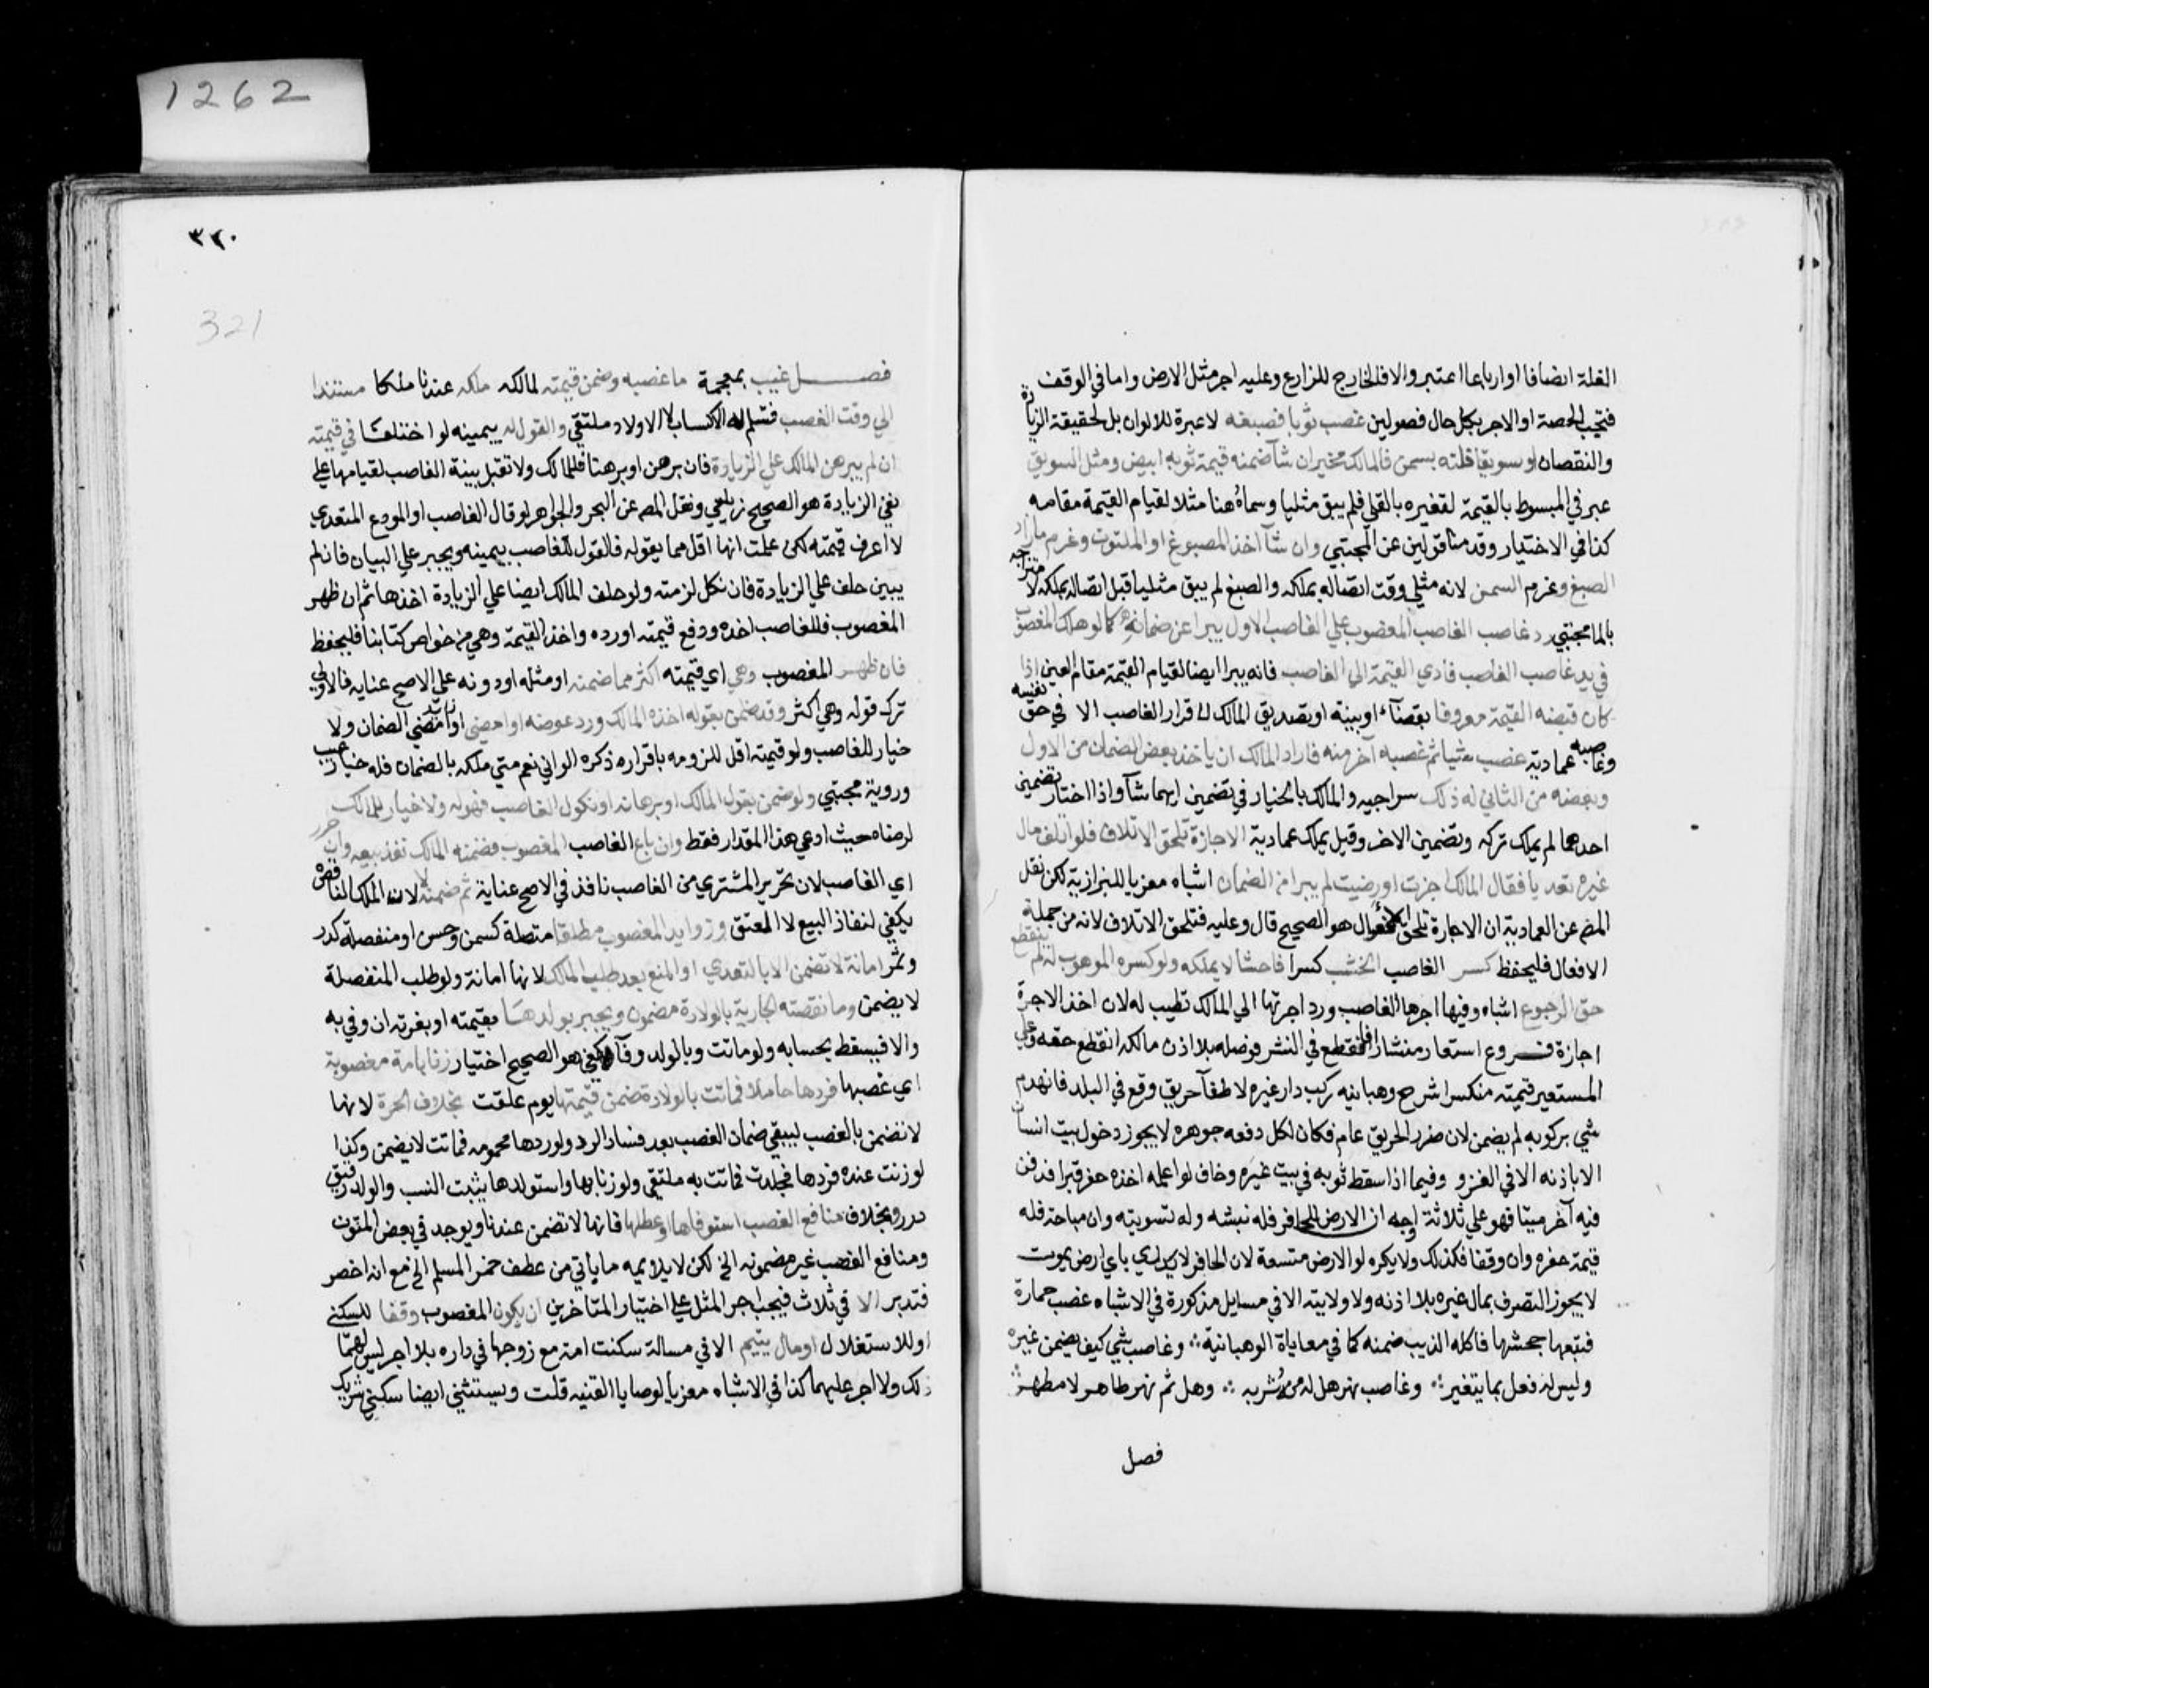 1262
الغلة انصافا او ارباعا اعتبر والا فالخارج للزارع وعليه اجر مثل الارض واما في الوقف
فتجب الحصة او الاجر بكل حال فصولين غصب ثوبا فصبغه لا عبرة للالوان بل لحقيقة الزيادة
والنقصان او سويقا فلته بسمن فالمالك مخير ان شآ ضمنه قيمة ثوبه ابيض ومثل السويق
عبر في المبسوط بالقيمة لتغيره بالقلي فلم يبق مثليا وسماه هنا مثلا لقيام القيمة مقامه
كذا في الاختيار وقدمنا قولين عن المجتبي وان شآ اخذ المصبوغ او الملتوت وغرم ما زاد
الصبغ وغرم السمن لانه مثلي وقت اتصاله بملكه والصبغ لم يبق مثليا قبل اتصاله بملكه لامتزاجه
بالما مجتبي رد غاصب الغاصب المغصوب علي الغاصب الاول يبرا عن ضمانه كما لو هلك المغصوب
في يد غاصب الغاصب فادي القيمة الي الغاصب فانه يبرا ايضا لقيام القيمة مقام العين اذا
كان قبضه القيمة معروفا بقضآء او بينة او تصديق المالك لا قرار الغاصب الا في حق نفسه
وغاصبه عمادية غصب شيا ثم غصبه آخر منه فاراد المالك ان ياخذ بعض الضمان من الاول
وبعضه من الثاني له ذلك سراجيه والمالك بالخيار في تضمين ايهما شآ واذا اختار تضمين
احدهما لم يملك تركه وتضمين الاخر وقيل يملك عمادية الاجازة تلحق الاتلاف فلو اتلف مال
غيره تعديا فقال المالك اجزت او رضيت لم يبرا من الضمان اشباه معزيا للبزازية لكن نقل
المص عن العمادية ان الاجازة تلحق الافعال هو الصحيح قال وعليه فتلحق الاتلاف لانه من جملة
الافعال فليحفظ كسر الغاصب الخشب كسرا فاحشا لا يملكه ولو كسره الموهوب له لم ينقطع
حق الرجوع اشباه وفيها اجرها الغاصب ورد اجرتها الي المالك تطيب له لان اخذ الاجرة
اجازة فروع استعار منشارا فانقطع في النشر فوصله بلا اذن مالكه انقطع حقه وعلي
المستعير قيمته منكسرا شرح وهبانيه ركب دار غيره لاطفآ حريق وقع في البلد فانهدم
شي بركوبه لم يضمن لان ضرر الحريق عام فكان لكل دفعه جوهره لا يجوز دخول بيت انسان
الا باذنه الا في الغزو وفيما اذا سقط ثوبه في بيت غيره وخاف لو اعلمه اخذه حفر قبرا فدفن
فيه آخر ميتا فهو علي ثلاثة اوجه ان الارض للحافر فله نبشه وله تسويته وان مباحة فله
قيمة حفره وان وقفا فكذلك ولا يكره لو الارض متسعة لان الحافر لا يدري باي ارض يموت
لا يجوز التصرف بمال غيره بلا اذنه ولا ولايته الا في مسايل مذكورة في الاشباه غصب حمارة
فتبعها جحشها فاكله الذيب ضمنه كما في معاياة الوهبانية ∴ وغاصب شي كيف يضمن غيره
وليس له فعل بما يتغير ∴ وغاصب نهر هل له من شربه ∴ وهل ثم نهر طاهر لا مطهر ∴
فصل
٣٢٠
321
فصل غيب بمعجمة ما غصبه وضمن قيمته لمالكه ملكه عندنا ملكا مستندا
الي وقت الغصب فتسلم له الاكساب لا الاولاد ملتقي والقول له بيمينه لو اختلفا في قيمته
ان لم يبرهن المالك علي الزيادة فان برهن او برهنا فللمالك ولا تقبل بينة الغاصب لقيامها علي
نفي الزيادة هو الصحيح زيلعي ونقل المص عن البحر والجواهر لو قال الغاصب او المودع المتعدي
لا اعرف قيمته لكن علمت انها اقل مما يقوله فالقول للغاصب بيمينه ويجبر علي البيان فان لم
يبين حلف علي الزيادة فان نكل لزمته ولو حلف المالك ايضا علي الزيادة اخذها ثم ان ظهر
المغصوب فللغاصب اخذه ودفع قيمته او رده واخذ القيمة وهي من خواص كتابنا فليحفظ
فان ظهر المغصوب وهي اي قيمته اكثر مما ضمنه او مثله او دونه علي الاصح عنايه فالاولي
ترك قوله وهي اكثر وقد ضمن بقوله اخذه المالك ورد عوضه او امضي الضمان ولا
خيار للغاصب ولو قيمته اقل للزومه باقراره ذكره الواني نعم متي ملكه بالضمان فله خيار عيب
وروية مجتبي ولو ضمن بقول المالك او برهانه او نكول الغاصب فهو له ولا خيار للمالك
لرضاه حيث ادعي هذا المقدار فقط وان باع الغاصب المغصوب فضمنه المالك نفذ بيعه وان حرر
اي الغاصب لان تحرير المشتري من الغاصب نافذ في الاصح عناية ثم ضمنه لا لان الملك الناقص
يكفي لنفاذ البيع لا العتق وزوايد المغصوب مطلقا متصلة كسمن وحسن او منفصلة كدر
وثمر امانة لا تضمن الا بالتعدي او المنع بعد طلب المالك لانها امانة ولو طلب المنفصلة
لا يضمن وما نقصته الجارية بالولادة مضمون ويجبر بولدها بقيمته او بغرته ان وفي به
والا فيسقط بحسابه ولو ماتت وبالولد وفآ كفي هو الصحيح اختيار زنا بامة مغصوبة
اي غصبها فردها حاملا فماتت بالولادة ضمن قيمتها يوم علقت بخلاف الحرة لانها
لا تضمن بالغصب ليبقي ضمان الغصب بعد فساد الرد ولو ردها محمومه فماتت لا يضمن وكذا
لو زنت عنده فردها فجلدت فماتت به ملتقي ولو زنا بها واستولدها يثبت النسب والولد رقيق
درر وبخلاف منافع الغصب استوفاها او عطلها فانها لا تضمن عندنا ويوجد في بعض المتون
ومنافع الغصب غير مضمونه الخ لكن لا يلايمه ما ياتي من عطف خمر المسلم الخ مع انه اخصر
فتدبر الا في ثلاث فيجب اجر المثل علي اختيار المتاخرين ان يكون المغصوب وقفا للسكني
او للاستغلال او مال يتيم الا في مسالة سكنت امه مع زوجها في داره بلا اجر ليس لهما
ذلك ولا اجر عليهما كذا في الاشباه معزيا لوصايا القنيه قلت ويستثني ايضا سكني شريك